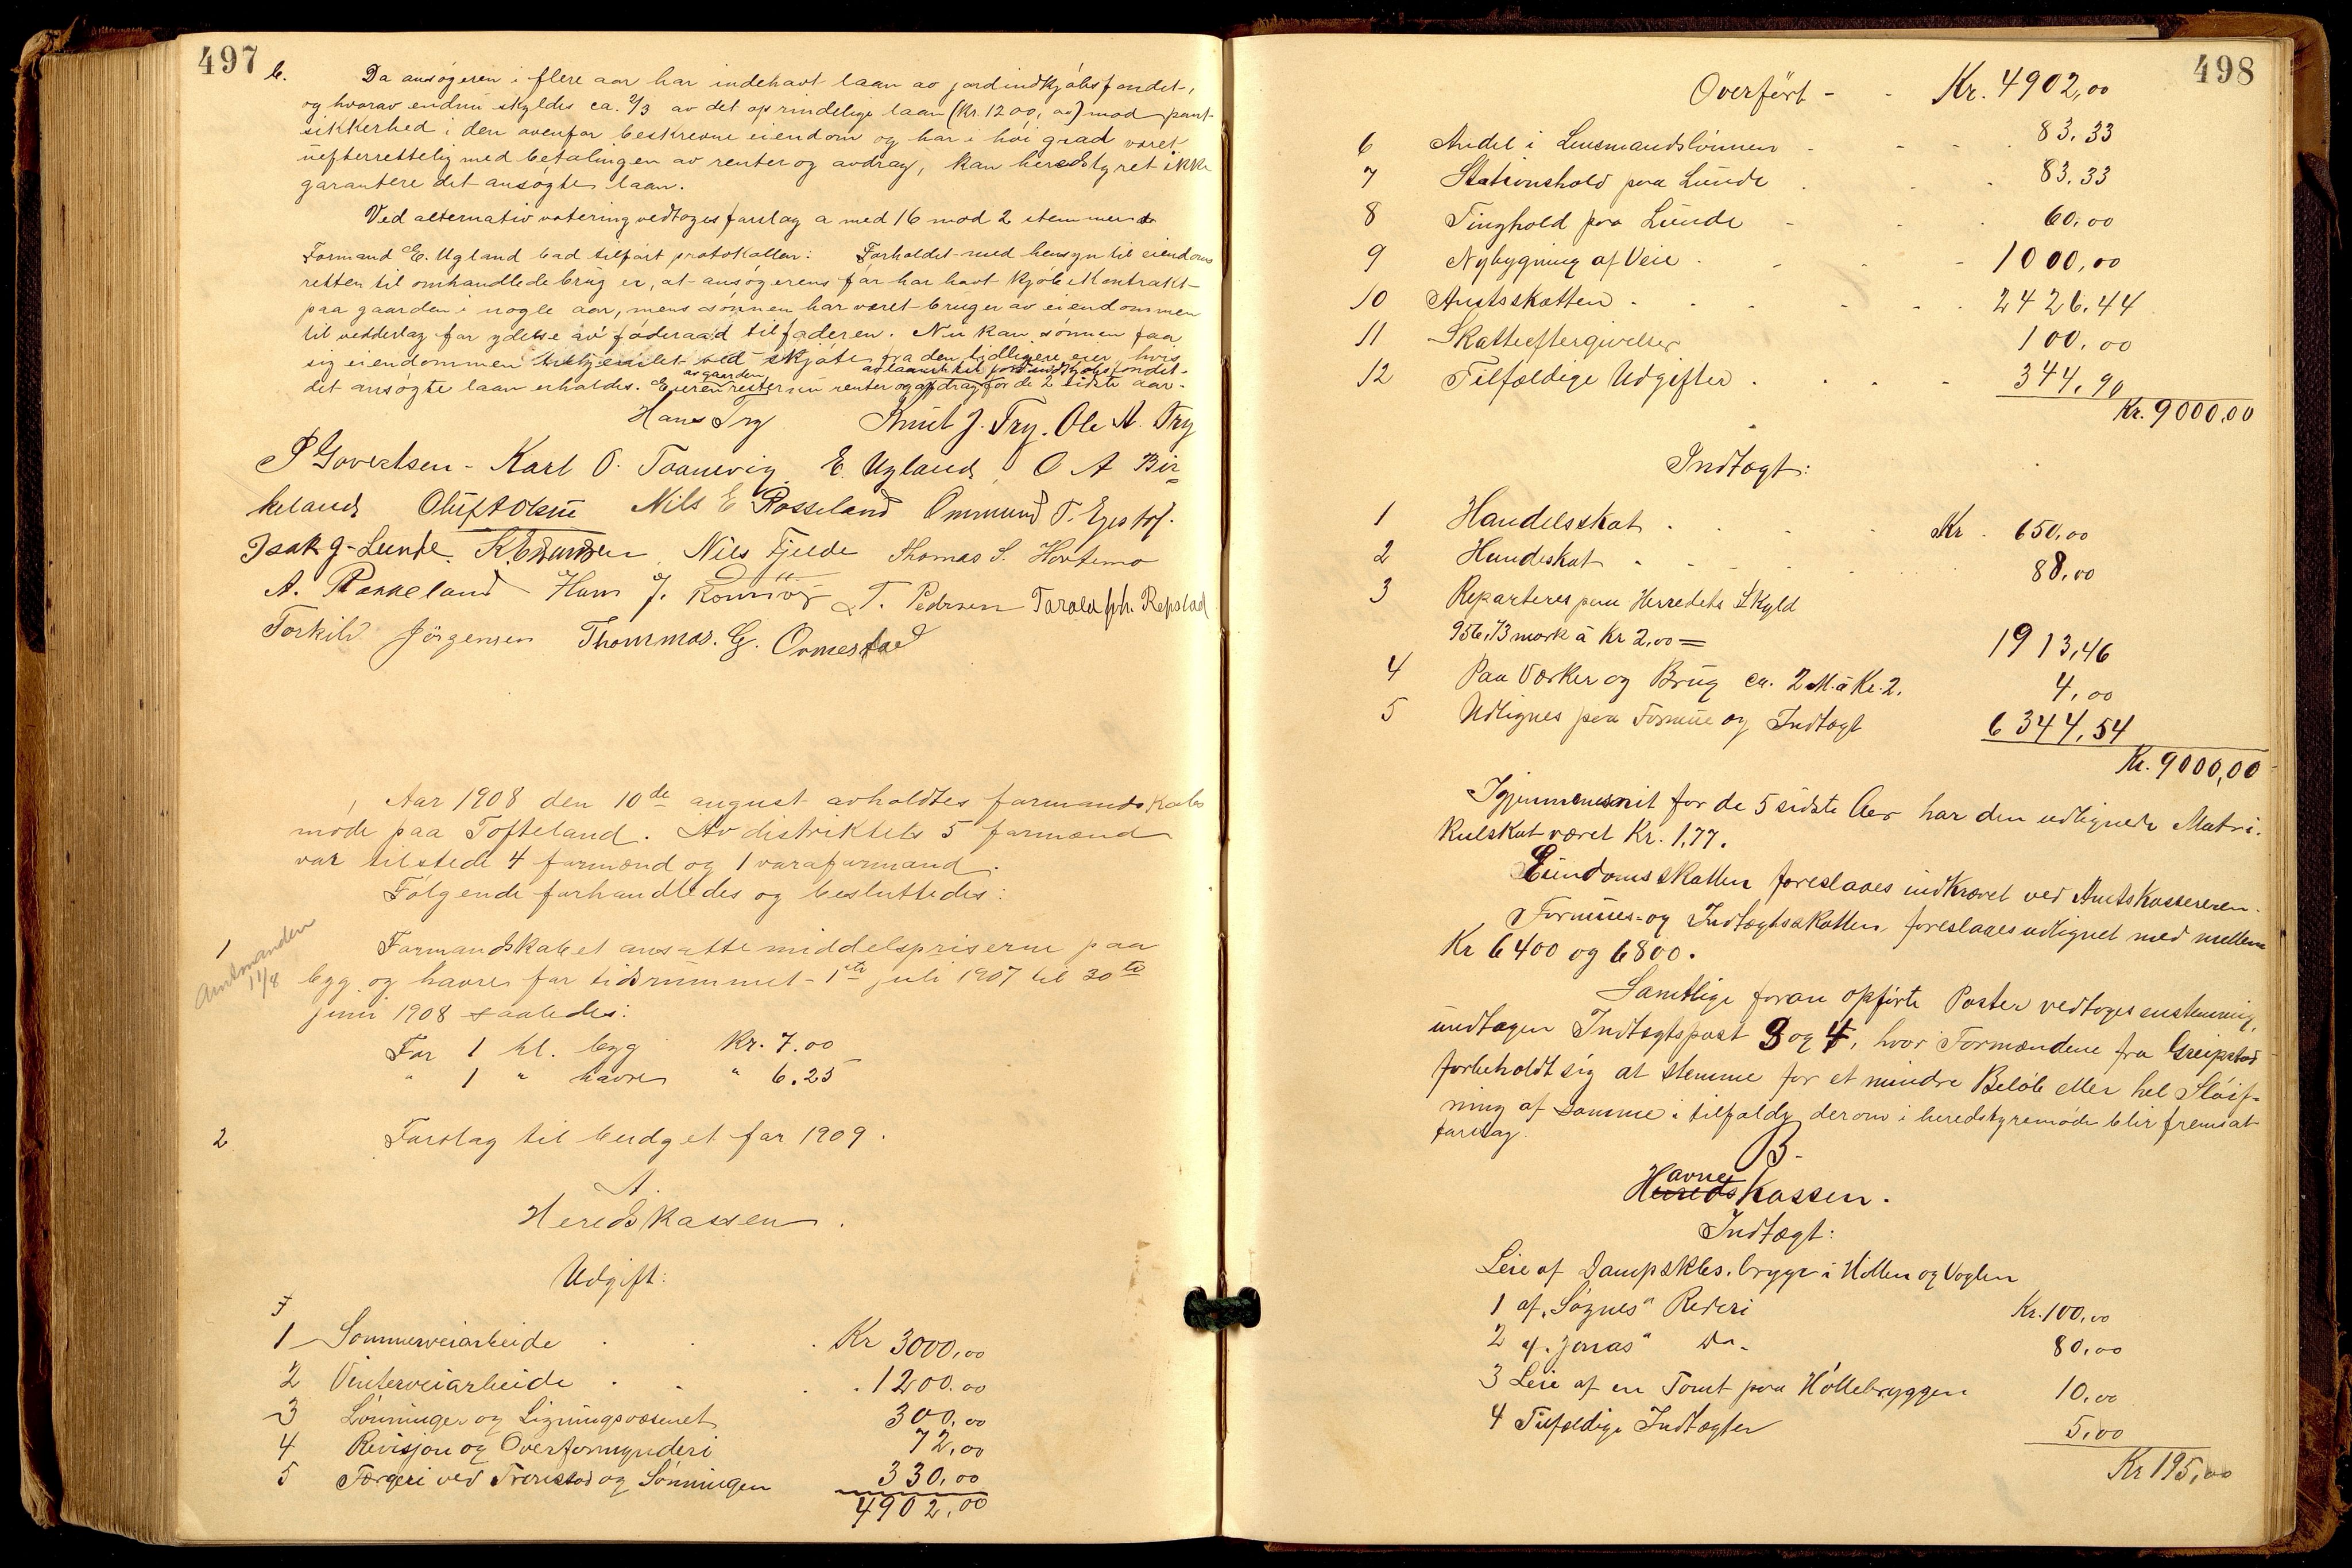 497
b. Da ansøgeren i flere aar har indehavt laan av jordindkjøbsfondet,
og hvorav endnu skyldes ca. 2/3 av det oprindelige laan (Kr. 1200,00) mod pant-
sikkerhed i den ovenfor beskrevne eiendom og har i høi grad været
uefterrettelig med betalingen av renter og avdrag, kan heredstyret ikke
garantere det ansøgte laan.
Ved alternativ votering vedtoges forslag a med 16 mod 2 stemmer
Formand E. Ugland bad tilført protokollen: Forholdet med hensyn til eiendoms
retten til omhandlede brug er, at ansøgerens far har havt kjøbekontrakt
paa gaarden i nogle aar, mens sønnen har været bruger av eiendommen
til vedderlag for ydelse av føderaad til faderen. Nu kan sønnen faa
sig eiendommen ved skjøte fra den tidligere eier, hvis
det ansøgte laan erholdes. Eieren av gaarden rester nu renter og afdrag av laanet til jordindkjøbsfondet for de 2 sidste aar.
Hans Try Knut J. Try. Ole A. Try
P Govertsen - Karl O. Taanevig E. Ugland O A Bir=
keland Oluf A Olsen Nils E Rosseland Ommund T. Egestøl.
Isak G. Lunde. Nils Fjelde Thomas S. Hortemo
A. Rækeland Hans J. T. Pedersen Tarald Repstad
Torkild Jörgensen Thommas. G. Ormestad
Aar 1908 den 10de august avholdtes formandskabs
møde paa Tofteland. Av distriktets 5 formænd
var tilstede 4 formænd og 1 varaformand.
Følgende forhandledes og besluttedes:
1 Formandskabet ansatte middelspriserne paa
Amtmanden 11/8
byg og havre for tidsrummet 1ste juli 1907 til 30te
juni 1908 saaledes:
For 1 hl. byg Kr. 7.00
" 1 " havre " 6.25
2 Forslag til budget for 1909.
A.
Heredskassen.
Udgift:
1 Sommerveiarbeide Kr 3000,00
2 Vinterveiarbeide 1200.00
3 Lønninger og Ligningsvæsenet 300,00
4 Revisjon og Overformynderi 72,00
5 Færgeri ved og Lønningen 330,00
4902,00
498
Overført - - Kr. 4902,00
6 Andel i Lensmandslønnen 83,33
7 Stationshold paa Lunde 83,33
8 Tinghold paa Lunde 60,00
9 Nybygning af Veie 1000,00
10 Amtsskatten 2426,44
11 Skatteeftergivelser 100,00
12 Tilfældige Udgifter 344,90
Kr. 9000,00
Indtægt:
1 Handelsskat Kr. 650,00
2 Hundeskat 88,00
3 Reparteres paa Herredets Skyld
956,73 mark à Kr 2,00 = 1913,46
4 Paa Værker og Brug ca. 2 M. à Kr. 2. 4,00
5 Udlignes paa Formue og Indtægt 6344,54
Kr. 9000,00
Igjennemsnit for de 5 sidste Aar har den udlignede Matri-
kulskat været Kr. 1,77.
Eiendomsskatten foreslaaes indkrævet ved Amtskassereren.
Formues- og Indtægtsskatten foreslaaes udlignet med mellem
Kr 6400 og 6800.
Samtlige foran opførte Poster vedtoges enstemmig,
undtagen Indtægtspost 3 og 4, hvor Formændene fra Greipstad
forbeholdt sig at stemme for et mindre Beløb eller hel Sløif-
ning af samme i tilfælde derom i heredstyremøde blir fremsat
forslag.
B.
Havnekassen.
Indtægt:
Leie af Dampskbs. brygge i Høllen og Voglen
1 af "Søgnes" Rederi Kr. 100,00
2 af "Jonas" Do. 80,00
3 Leie af en Tomt paa Høllebryggen 10,00
4 Tilfældige Indtægter 5,00
Kr 195,00